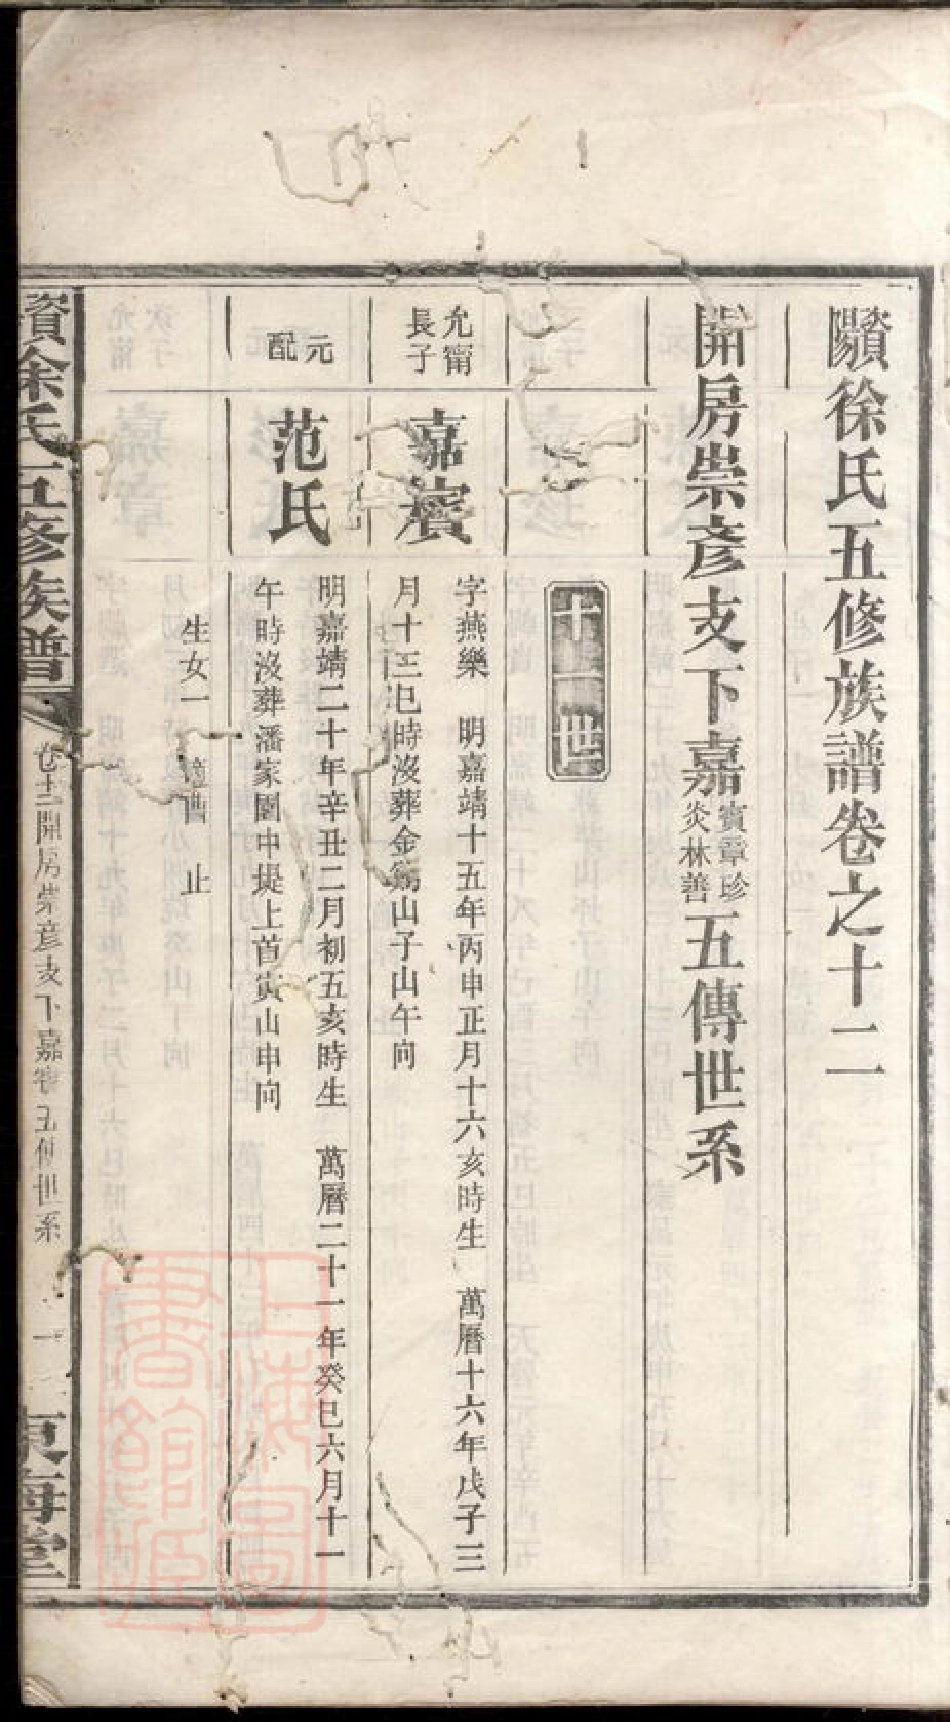 資陽徐氏五修族譜卷之十二
開房崇彥支下嘉賓章珍炎林善五傳世系
十一世
允甯長子
嘉賓
字燕樂　明嘉靖十五年丙申正月十六亥時生　萬曆十六年戊子三
月十三巳時沒葬金鵝山子山午向
元配
范氏
明嘉靖二十年辛丑二月初五亥時生　萬曆二十一年癸巳六月十一
午時沒葬潘家園中堤上首寅山申向
生女一　適曹　止
資徐氏五修族譜
卷十二開房崇彥支下嘉賓五傳世系
一
東海堂
上海圖書館